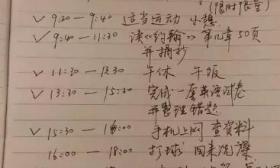 (限时限量)
✓ 9:30 — 9:40 适当运动 小憩
✓ 9:40 — 11:30 读《约翰》第几章50页
并摘抄
✓ 11:30 — 13:30 午休 午饭
✓ 13:30 — 15:30 完成一套英语试卷
并整理错题
✓ 15:30 — 16:00 手机上网 查资料
16:00 — 18:00 打球 回来洗澡